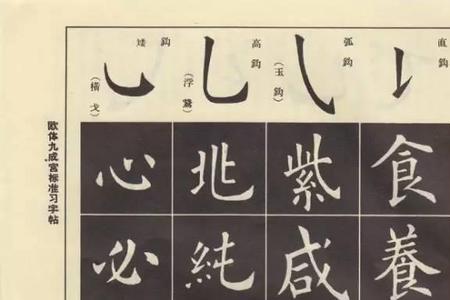 直鈎
食
養
弧鈎
（玉鈎）
紫
咸
高鈎
（浮鵞）
北
純
矮鈎
（横戈）
心
必
欧体九成宫标准习字帖